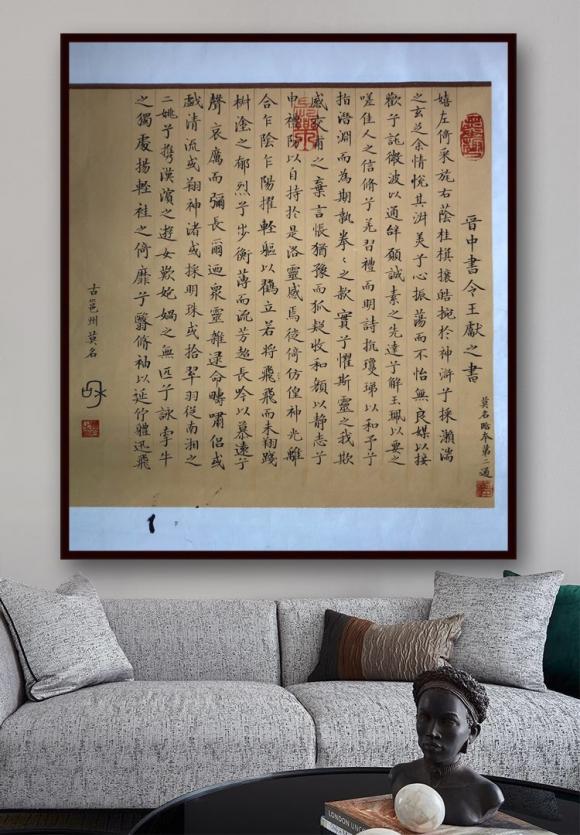 晉中書令王獻之書
莫名臨奉第二通
嬉左倚采旄右蔭桂棋攘皓捥於神滸兮採瀨湍
之玄芝余情悅其淑美兮心振蕩而不怡無良媒以接
歡兮託微波以通辭願誠素之先達兮解玉珮以要之
嗟佳人之信脩兮羌習禮而明詩抗瓊珶以和予兮
指潛淵而為期執拳〻之款實兮懼斯靈之我欺
感交甫之棄言悵猶豫而狐疑收和顏以靜志兮
申禮防以自持於是洛靈感焉徙倚仿偟神光離
合乍陰乍陽擢輕軀以鶴立若將飛飛而未翔踐
椒塗之郁烈兮步衡薄而流芳超長吟以慕遠兮
聲哀厲而彌長爾迺衆靈雜遝命疇嘯侶或
戲清流或翔神渚或採明珠或拾翠羽從南湘之
二姚兮攜漢濱之遊女歎妑媧之無匹兮詠牽牛
之獨處揚輕袿之倚靡兮翳脩袖以延佇體迅飛
古邕州莫名
LONDON